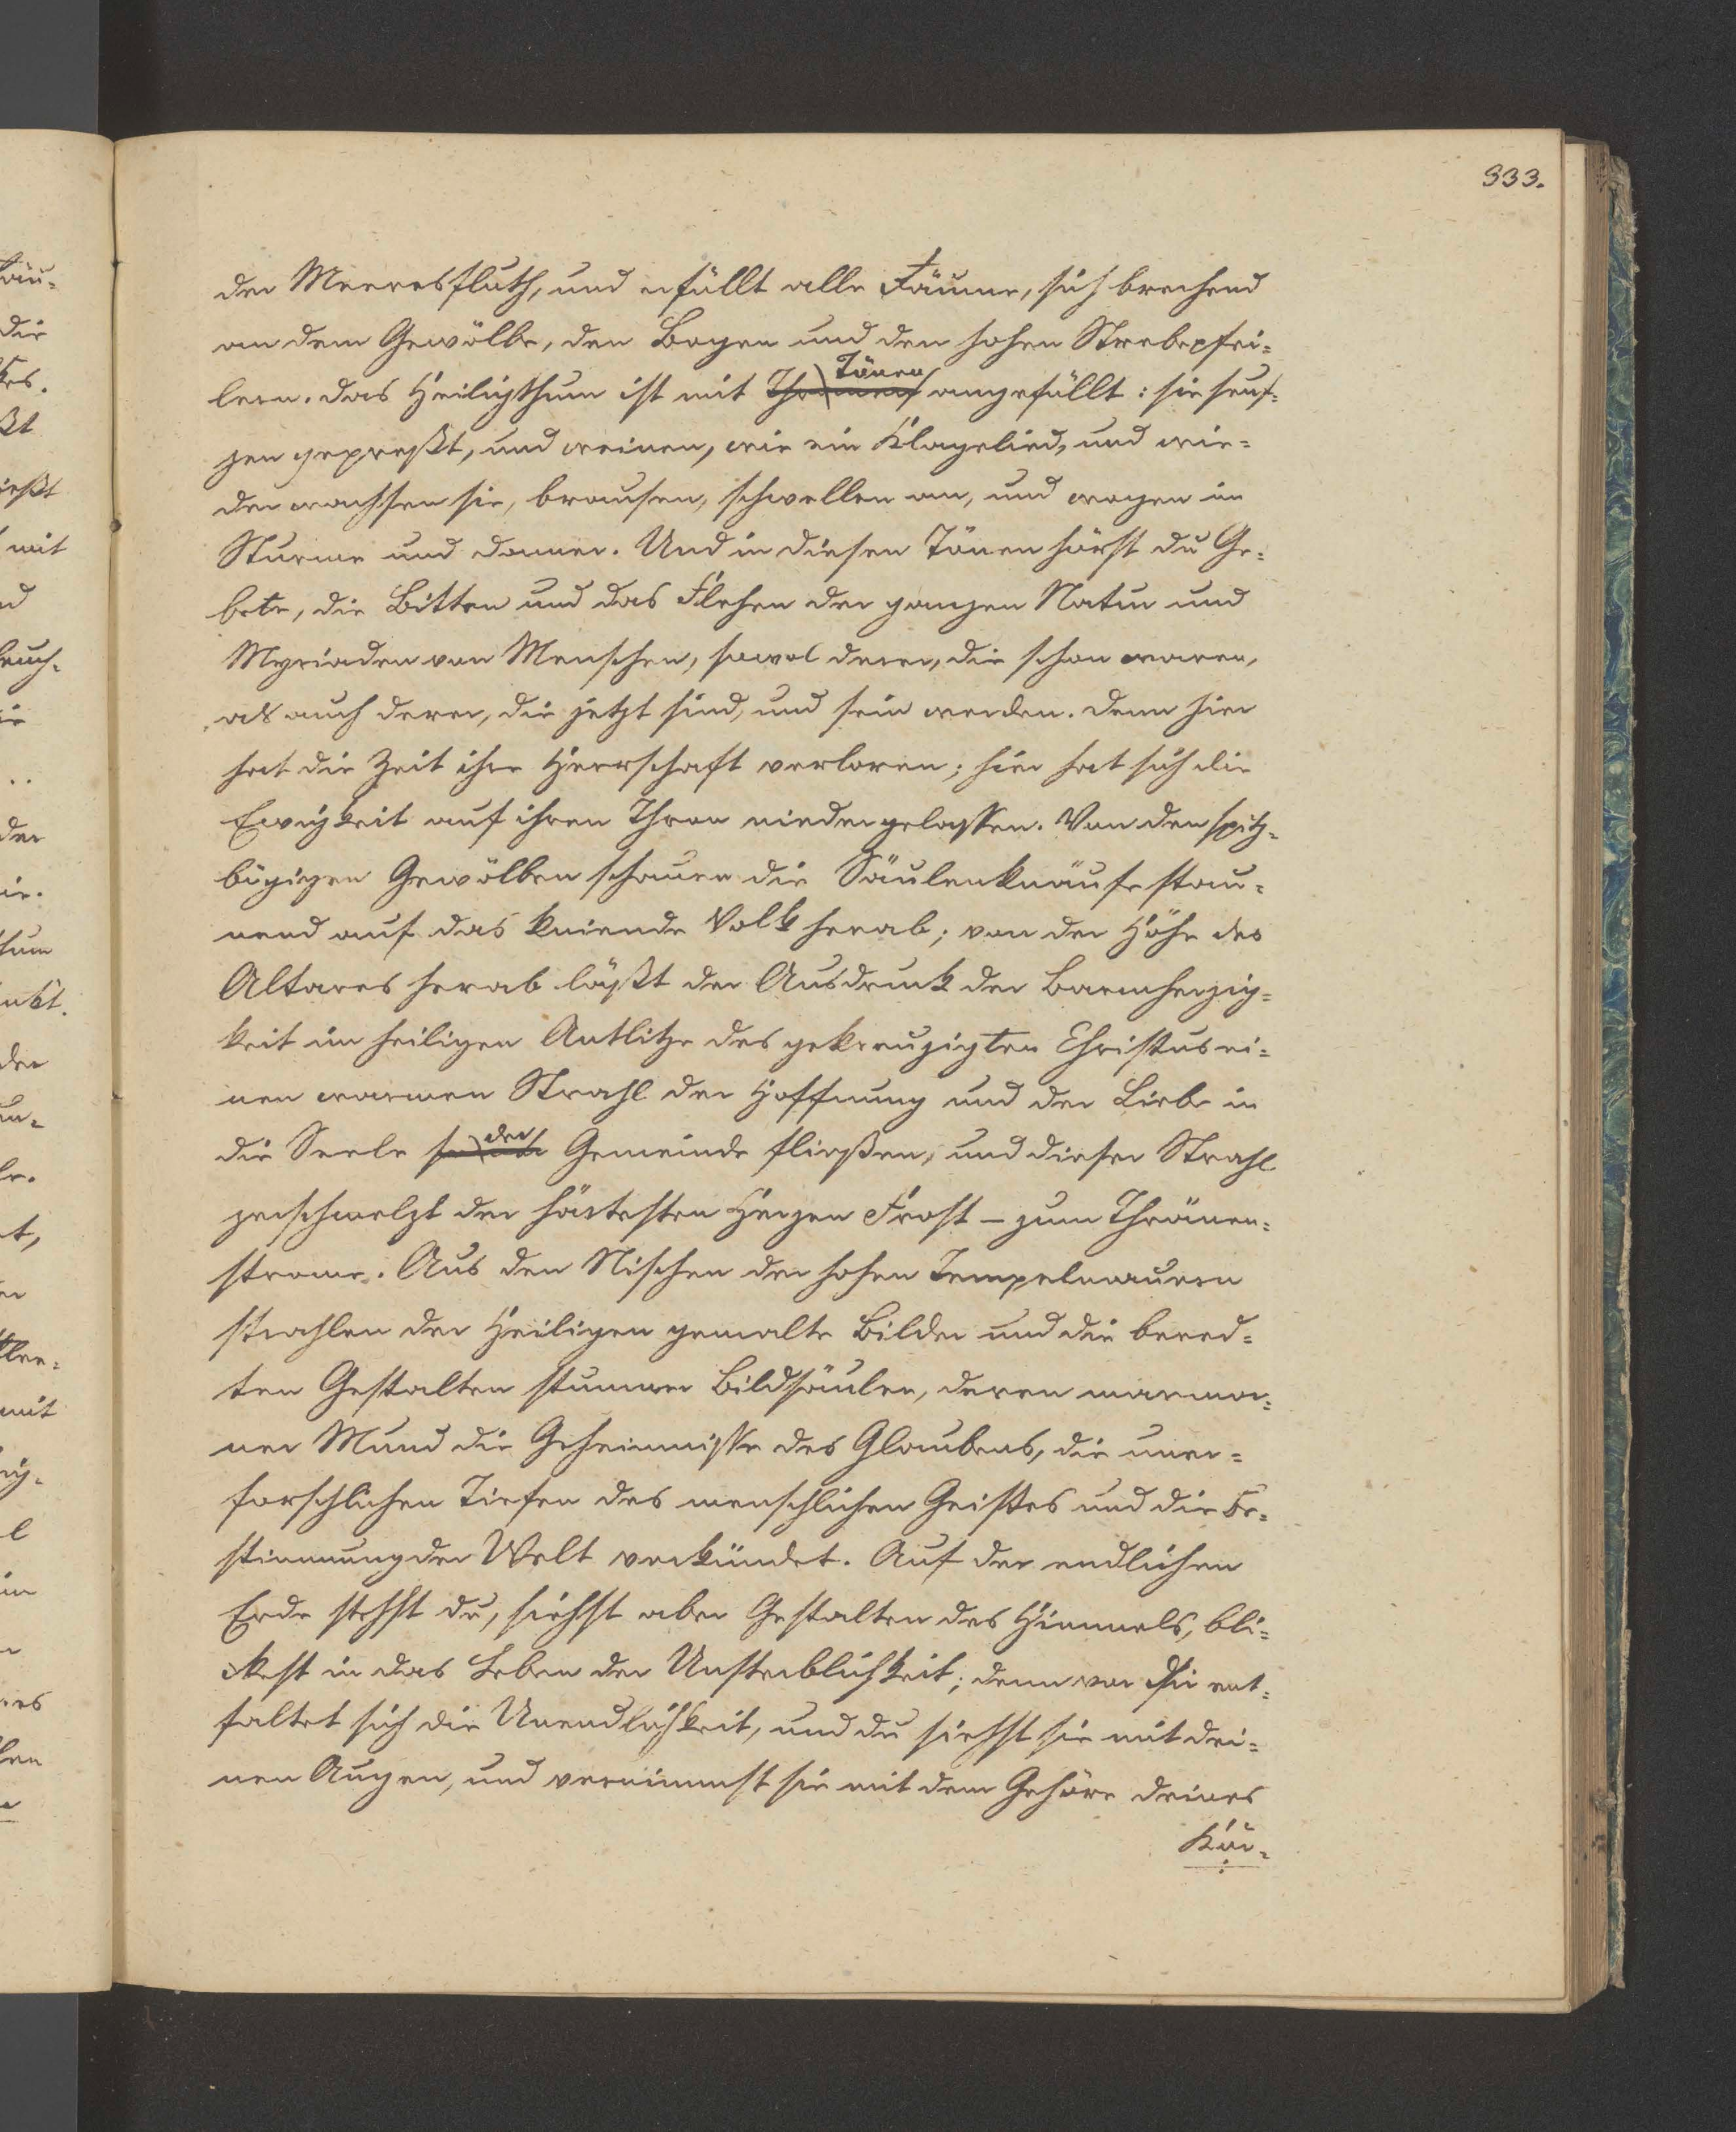 333.
der Meeresfluth, und erfüllt alle Räume, sich brechend
an dem Gewölbe, den Bogen und den hohen Strebepfei-
lern. Das Heiligthum ist mit Tönen angefüllt: sie seuf-
zen gepreßt, und weinen, wie ein Klagelied, und wie-
der wachsen sie, brausen, schwellen an, und wogen im
Sturme und Donner. Und in diesen Tönen hörst du Ge-
bete, die Bitten und das Flehen der ganzen Natur und
Myriaden von Menschen, sowol derer, die schon waren,
als auch derer, die jetzt sind, und sein werden. Denn hier
hat die Zeit ihre Herrschaft verloren; hier hat sich die
Ewigkeit auf ihren Thron niedergelassen. Von den spitz-
bögigen Gewölben schauen die Säulenknäufe stau-
nend auf das kniende Volk herab; von der Höhe des
Altares herab läßt der Ausdruck der Barmherzig-
keit im heiligen Antlitze des gekreuzigten Christus ei-
nen warmen Strahl der Hoffnung und der Liebe in
die Seele der Gemeinde fließen, und dieser Strahl
zerschmelzt der härtesten Herzen Frost – zum Thränen-
strome. Aus den Nischen der hohen Tempelmauern
strahlen der Heiligen gemalte Bilder und die bered-
ten Gestalten stummer Bildsäulen, deren marmor-
ner Mund die Geheimnisse des Glaubens, die uner-
forschlichen Tiefen des menschlichen Geistes und die Be-
stimmung der Welt verkündet. Auf der endlichen
Erde stehst du, siehst aber Gestalten des Himmels, bli-
ckest in das Leben der Unsterblichkeit; denn vor dir ent-
faltet sich die Unendlichkeit, und du siehst sie mit dei-
nen Augen, und vernimmst sie mit dem Gehöre deines
Kör-